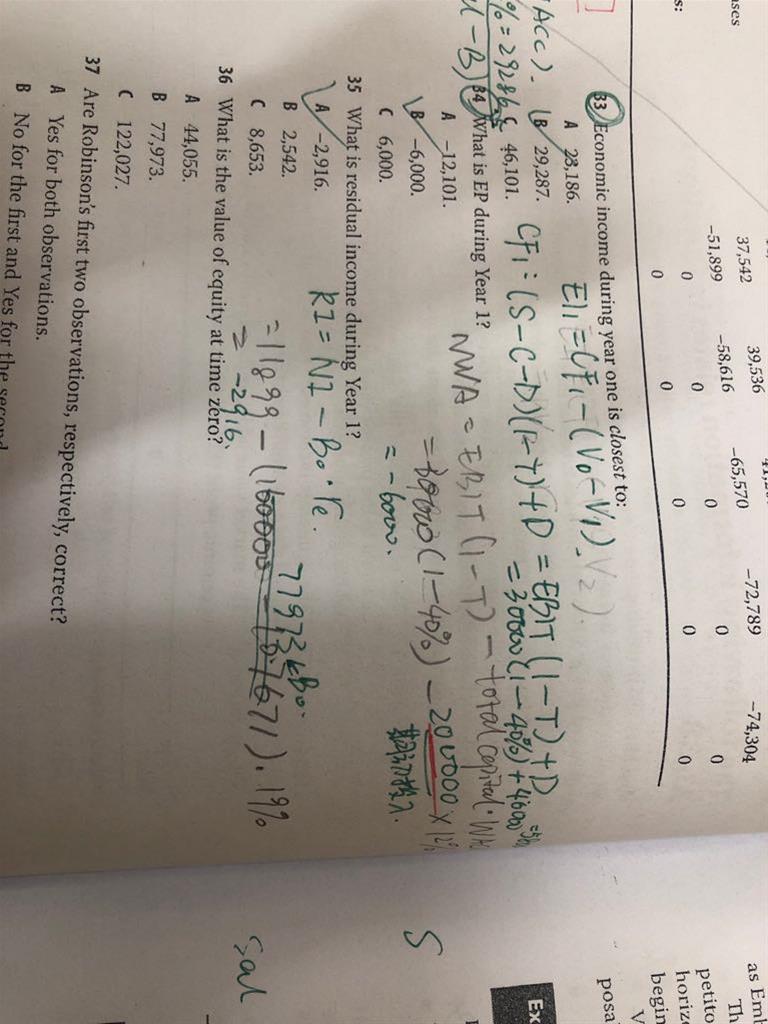 ases
s:
37,542 39,536 -72,789 -74,304
-51,899 -58,616 -65,570 0 0
0 0 0 0 0
0 0 0
33 Economic income during year one is closest to:
A 23,186.
B 29,287.
C 46,101.
34 What is EP during Year 1?
A -12,101.
B -6,000.
C 6,000.
35 What is residual income during Year 1?
A -2,916.
B 2,542.
C 8,653.
36 What is the value of equity at time zero?
A 44,055.
B 77,973.
C 122,027.
37 Are Robinson's first two observations, respectively, correct?
A Yes for both observations.
B No for the first and Yes for the second
EI₁ = CF₁ - (V₀ - V₁)
CF₁ = (S-C-D)(1-T)+D = EBIT(1-T)+D
= 30000(1-40%) + 46000
EBIT(1-T) - total capital·WA
(1-40%) - 200000 × 12%
= -6000.
RI = NI - B₀·re.
77973 B₀.
= 11899 - ( ).19%
= -2916.
as Emb
Th
petito
horiz
begin
V
posa
Ex
S
Sal